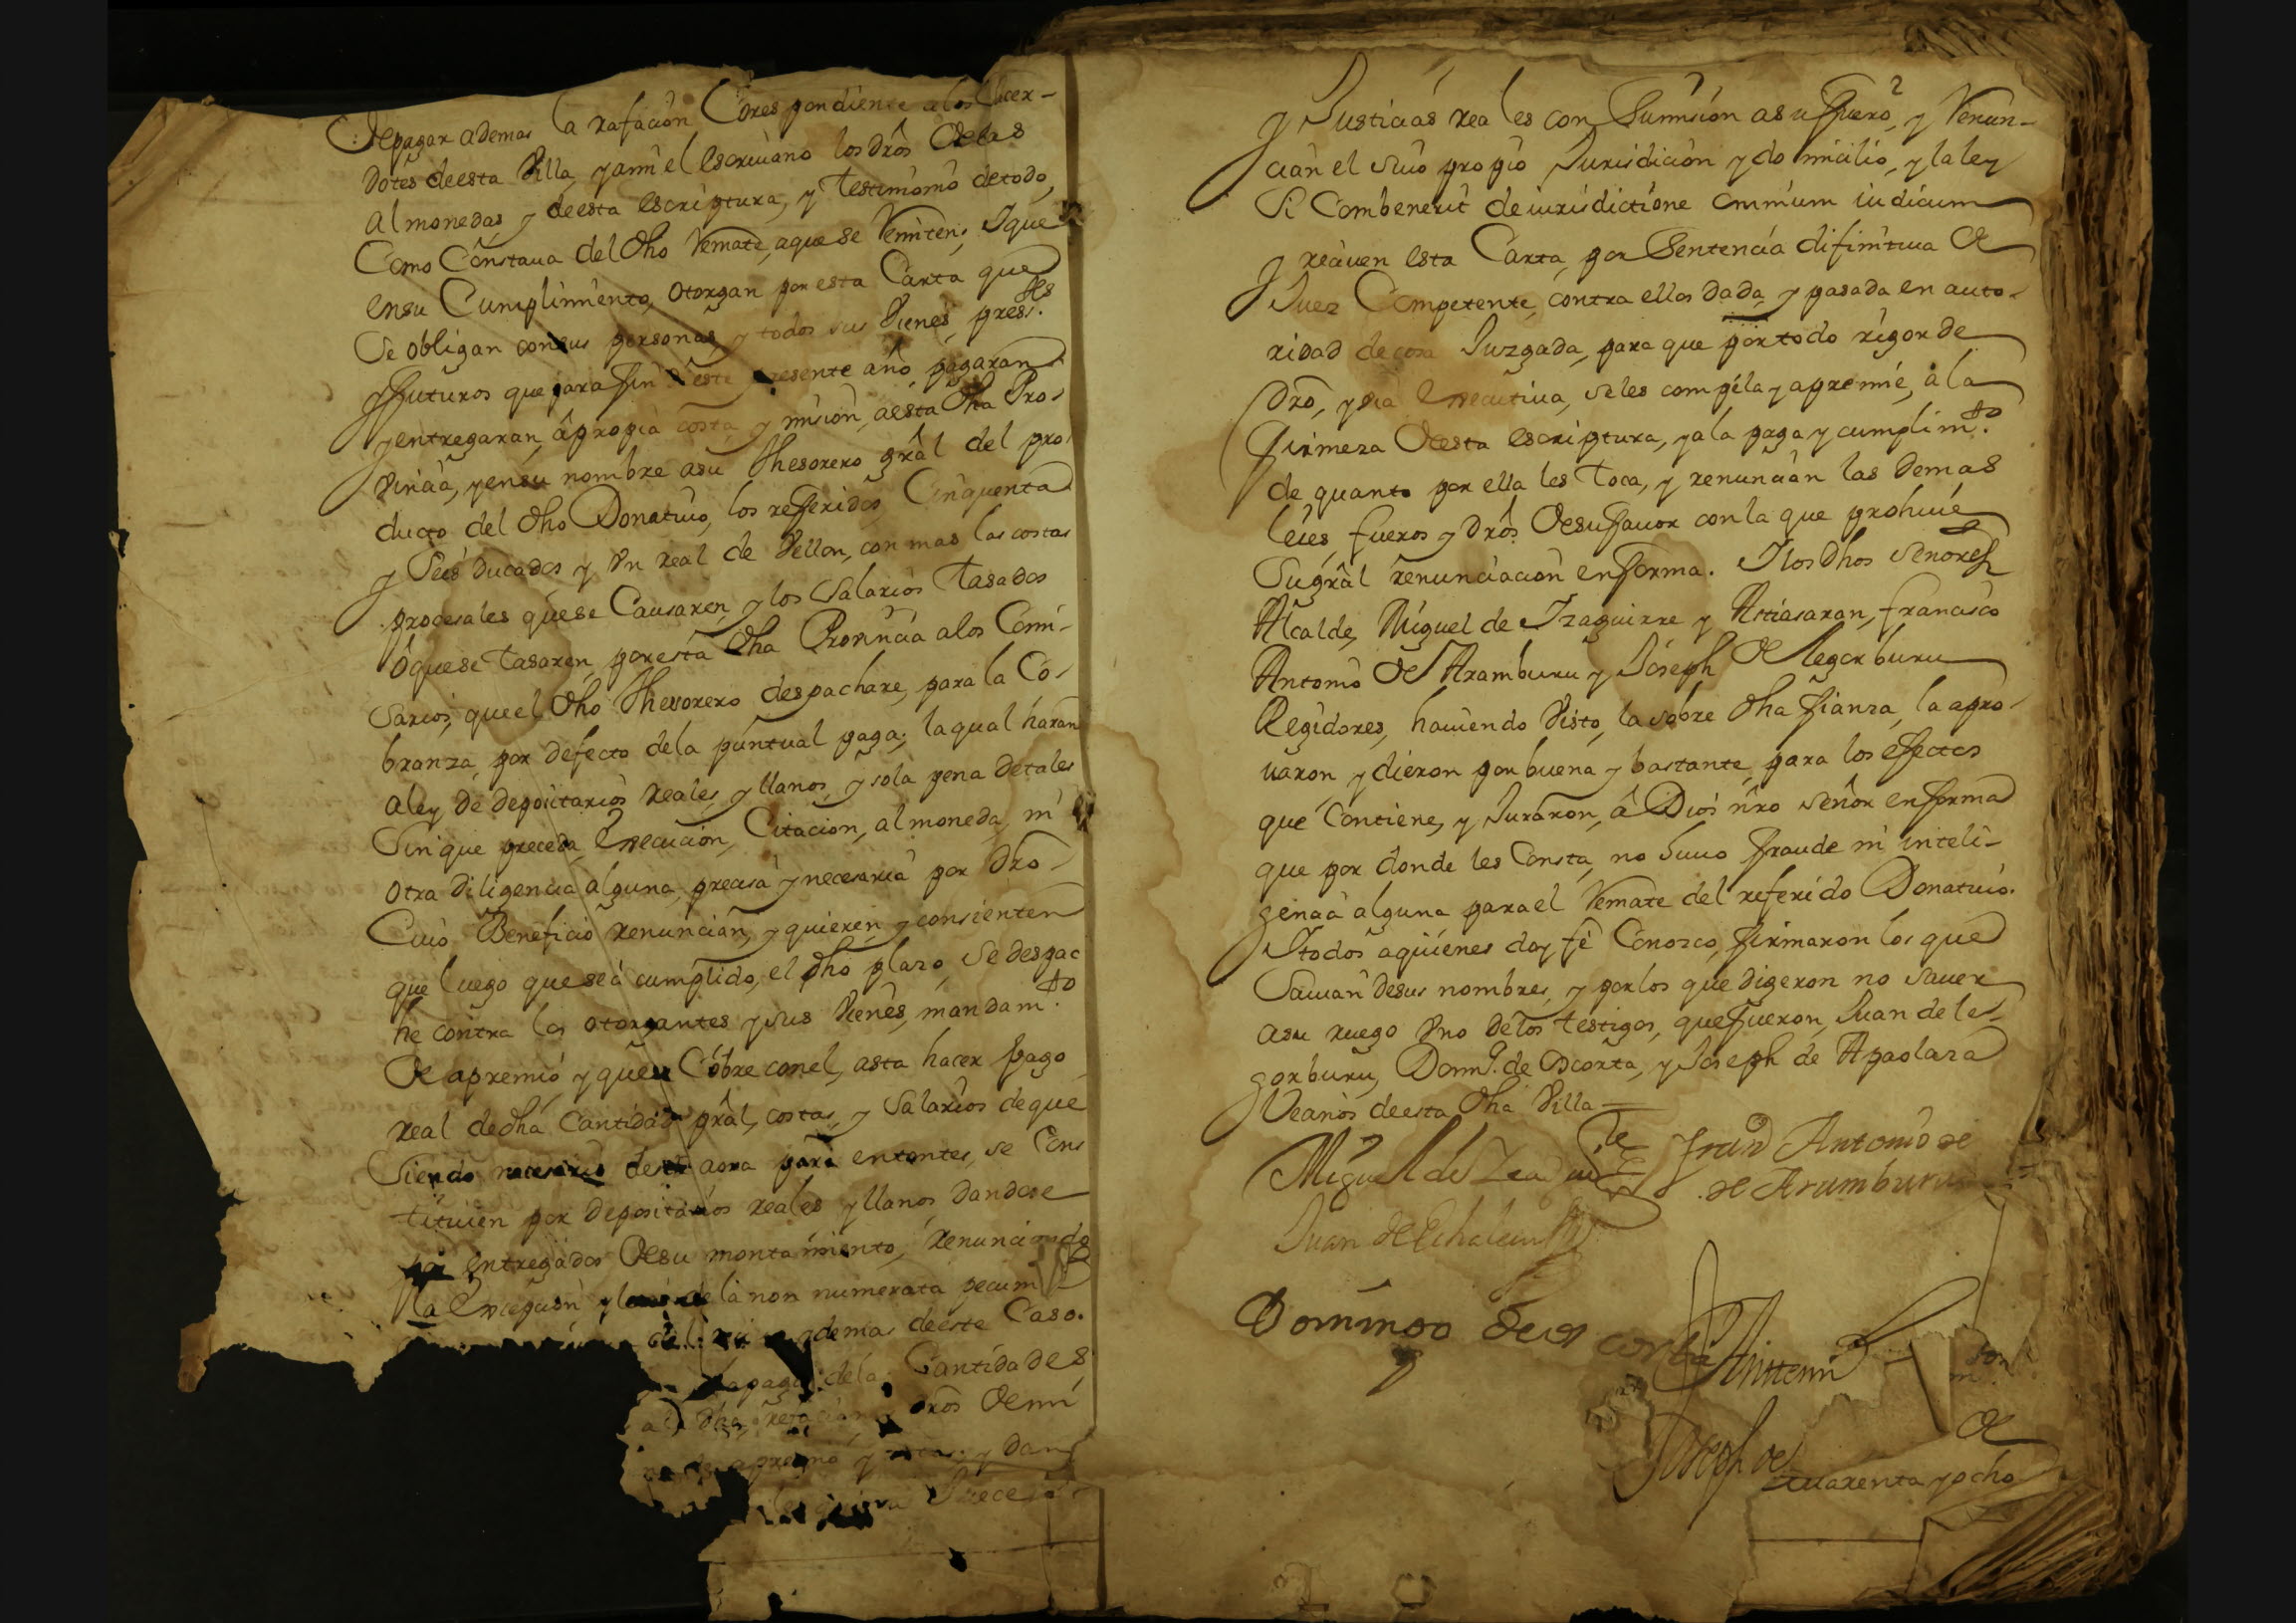 de pagar ademas la rafacion Corespondiente a los Sacer-
dotes de esta Villa, y a mi el escriuano los drôs de las
almonedas, y de esta escriptura, y testimonio de todo,
Como Constaua del dho Remate, a que se Remiten, Y que
en su Cumplimiento, otorgan por esta Carta que
Se obligan con sus personas, y todos sus Vienes, pres.tes
y futuros que para fin d'este presente año, pagaran
y entregaran, â propia costa, y mision, a esta dha Pro-
vinçia, y en su nombre a su Thesorero grâl del pro-
ducto del dho Donatiuo, los referidos Cinquenta
y Seis ducados y Vn real de Vellon, con mas las costas
procesales que se Causaren, y los Salarios tasados
ô que se tasaren, por esta dha Prouincia a los Comi-
sarios, que el dho Thesorero despachare, para la Co-
branza, por defecto de la puntual paga; la qual haran
a ley de depositarios reales, y llanos, y sola pena de tales
Sin que preceda Execucion, Citacion, almoneda, ni
otra diligencia alguna, precisa y necesaria por dro
Cuio Beneficio renuncian, y quieren, y consienten
que luego que sea cumplido, el dho plazo, Se despac
he contra los otorgantes y sus Vienes, mandam.to
de apremio y que se Cobre con el, asta hacer pago
real de dha Cantidad prâl, costas, y Salarios de que
Siendo necesario desde aora para entontes, se Cons
tituien por depositarios reales y llanos dandose
por entregados de su montamiento, renunciando
la Excepcion y leies de la non numerata pecunia
demas de este Caso.
la paga de la Cantidades
a la dha refacion drôs de mi
apremio y y dan
Jueces
y Justicias reales con Sumision a su fuero, y Renun-
cian el Suio propio Jurisdicion y domicilio, y la ley
Si Combenerit de iurisdictione omnium iudicum
y reciuen esta Carta, por Sentencia difinitiua de
Juez Competente, contra ellos dada, y pasada en auto-
ridad de cosa Juzgada, para que por todo rigor de
dro, y via Executiua, se les compela y apremie, a la
firmeza de esta escriptura, y a la paga y cumplim.to
de quanto por ella les toca, y renuncian las demas
leies, fueros y drôs de su fauor con la que prohiue
Su grâl renunciacion en forma. Y los dhos Señores
Alcalde, Miguel de Yzaguirre y Astiasaran, francisco
Antonio de Aramburu y Joseph de legorburu
Regidores, hauiendo Visto, la sobre dha fianza, la apro-
uaron y dieron por buena y bastante, para los efectos
que Contiene, y Juraron, â Dios nrô Señor en forma
que por donde les Consta, no huuo fraude ni inteli-
gençia alguna para el Remate del referido Donatiuo.
Y todos a quienes doy fê Conozco, firmaron los que
Sauian de sus nombres, y por los que digeron no sauer
a su ruego Vno de los testigos, que fueron, Juan de le-
gorburu, Dom.o de Ascorta, y Joseph de Apaolaza
Vecinos de esta dha Villa
Miguel de
Fran.co Antonio de
de Aramburu
Juan de
Domingo de as corta
Ante mi
Joseph de
de
quarenta y ocho